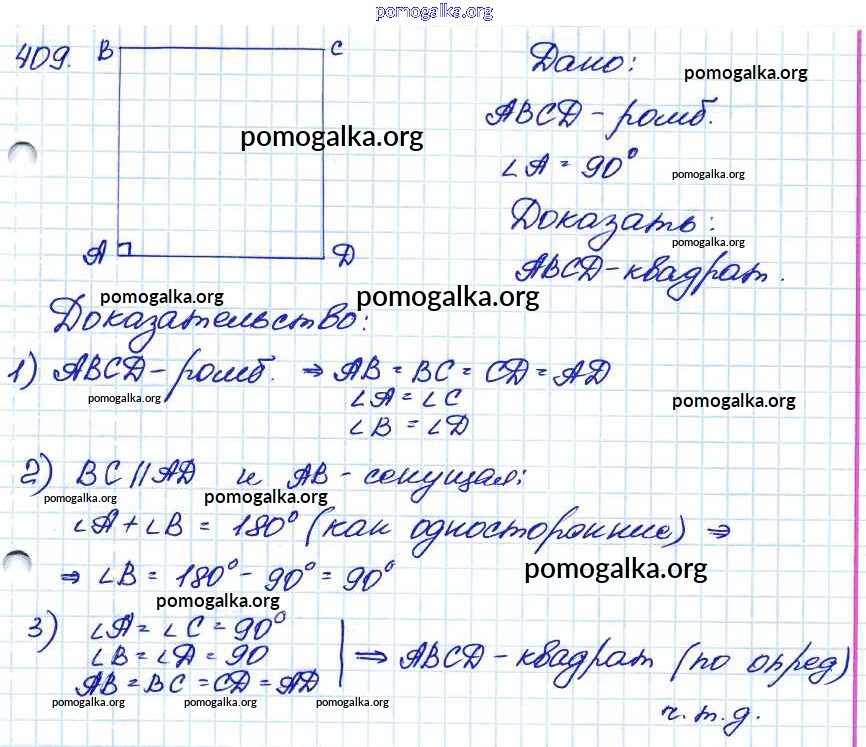 pomogalka.org
409. B C Дано:
pomogalka.org
ABCD - ромб.
pomogalka.org
∠A = 90°
pomogalka.org
Доказать:
pomogalka.org
A D
ABCD - квадрат.
pomogalka.org pomogalka.org
Доказательство:
1) ABCD - ромб. ⇒ AB = BC = CD = AD
pomogalka.org
∠A = ∠C
pomogalka.org
∠B = ∠D
2) BC || AD и AB - секущая;
pomogalka.org pomogalka.org
∠A + ∠B = 180° (как односторонние) ⇒
⇒ ∠B = 180° - 90° = 90°
pomogalka.org
pomogalka.org
3) ∠A = ∠C = 90°
∠B = ∠D = 90 ⇒ ABCD - квадрат (по опред)
AB = BC = CD = AD
pomogalka.org pomogalka.org pomogalka.org pomogalka.org
ч.т.д.